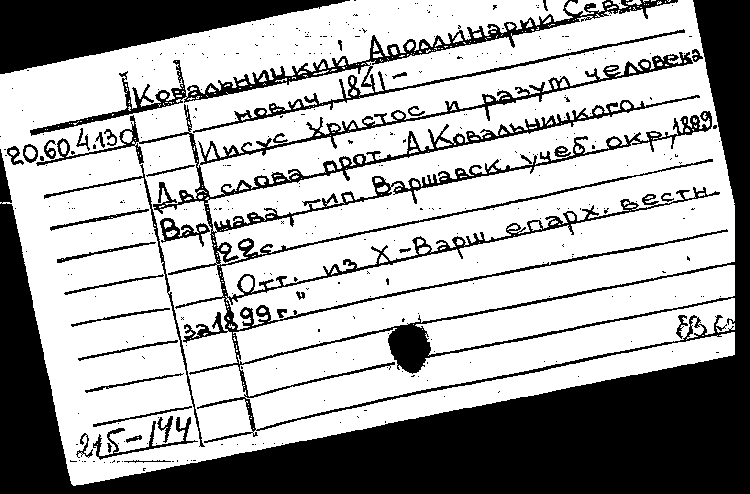 Ковальницкий, Аполлинарий Север
нович, 1841-
20.60.4.130
Иисус Христос и разум человека
Два слова прот. А.Ковальницкого.
Варшава, тип. Варшавск. учеб. окр., 1899.
22с.
"Отт. из Х-Варш. епарх. вестн.
за 1899 г."
215-144